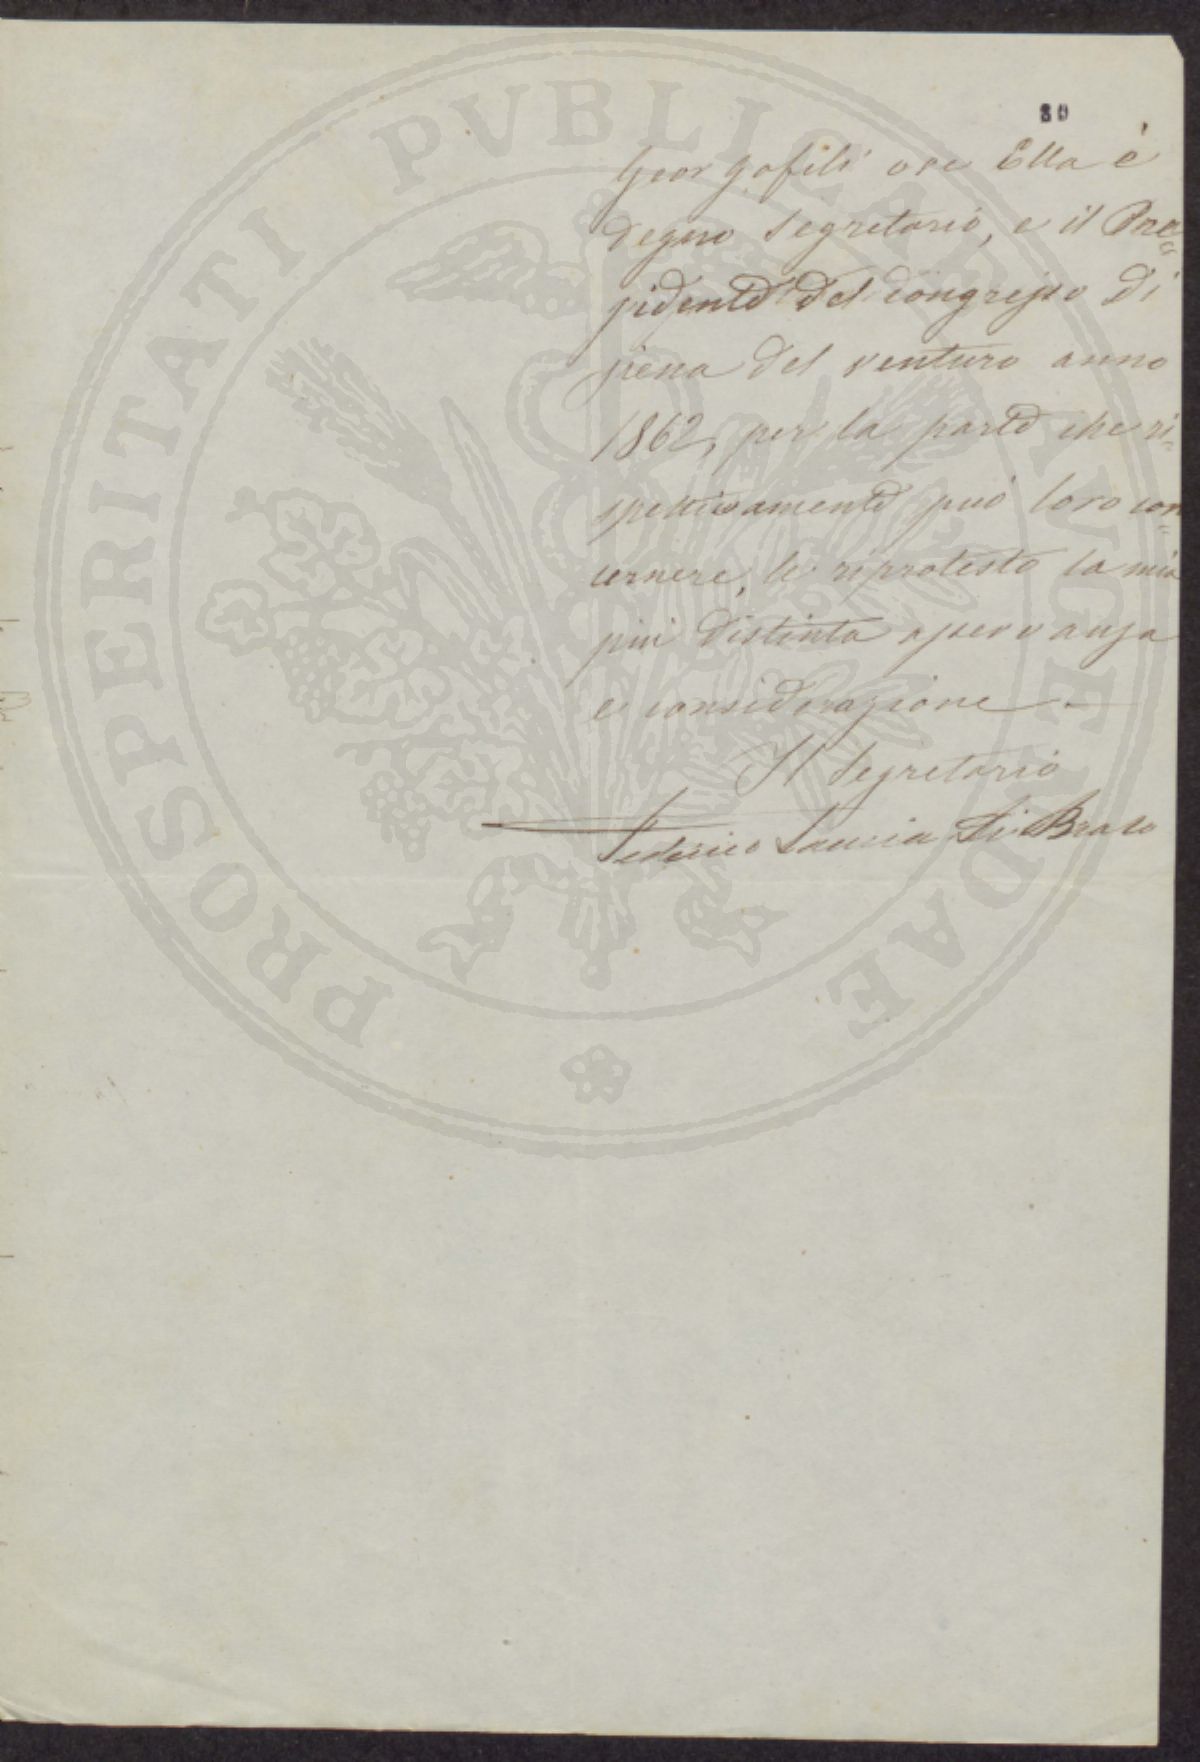 80
Georgofili ove Ella è
degno Segretario, e il Pre=
sidente del Congresso di
Siena del venturo anno
1862, per la parte che ri=
spettivamente può loro con=
cernere, le riprotesto la mia
più distinta osservanza
e considerazione.
Il Segretario
Federico Lancia di Brolo
PROSPERITATI PVBLICAE AVGENDAE